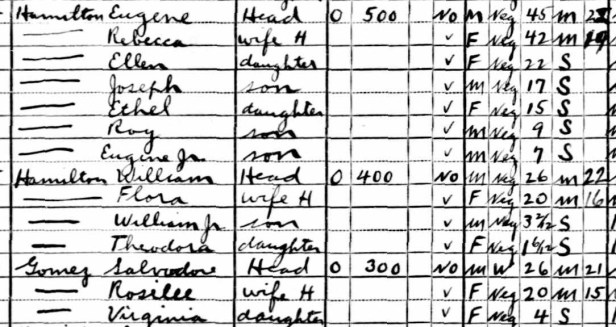 Hamilton Eugene Head O 500 No M Neg 45 M
— Rebecca wife H ✓ F Neg 42 M 19
— Ellen daughter ✓ F Neg 22 S
— Joseph son ✓ M Neg 17 S
— Ethel daughter ✓ F Neg 15 S
— Roy son ✓ M Neg 9 S
— Eugene Jr son ✓ M Neg 7 S
Hamilton William Head O 400 No M Neg 26 M 22
— Flora wife H ✓ F Neg 20 M 16
— William Jr son ✓ M Neg 3 2/12 S
— Theodora daughter ✓ F Neg 1 6/12 S
Gomez Salvodore Head O 300 No M W 26 M 21
— Rosilee wife H ✓ F Neg 20 M 15
— Virginia daughter ✓ F Neg 4 S